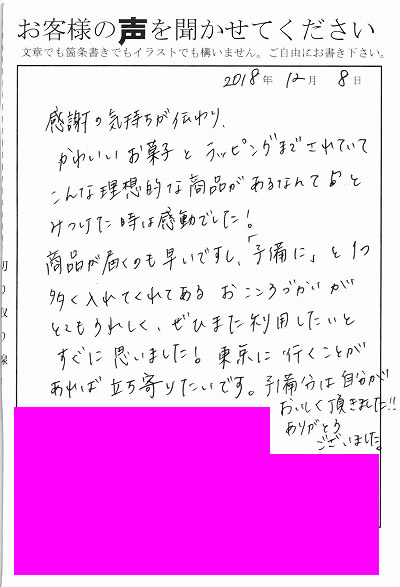 お客様の声を聞かせてください
文章でも箇条書きでもイラストでも構いません。ご自由にお書き下さい。
2018年 12月 8日
感謝の気持ちが伝わり、
かわいいお菓子とラッピングまでされていて
こんな理想的な商品があるなんて♪と
みつけた時は感動でした!
商品が届くのも早いですし、「予備に」と1つ
多く入れてくれてあるおこころづかいが
とてもうれしく、ぜひまた利用したいと
すぐに思いました!東京に行くことが
あれば立ち寄りたいです。予備分は自分が
おいしく頂きました!!
ありがとう
ございました。
切り取り線